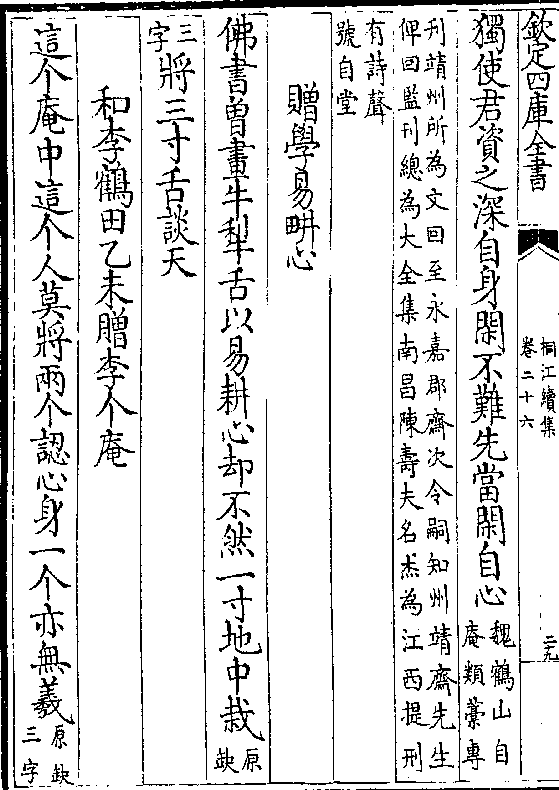 欽定四庫全書
桐江續集
卷二十六
二九
獨使君資之深自身閑不難先當閑自心魏鶴山自
庵類藁專
刋靖州所為文回至永嘉郡齋次令嗣知州靖齋先生
俾回監刋總為大全集南昌陳壽夫名杰為江西提刑
有詩聲
號自堂
贈學易畊心
佛書曽畫牛犁舌以易耕心却不然一寸地中栽原
缺
三
字將三寸舌談天
和李鶴田乙未贈李个庵
這个庵中這个人莫將兩个認心身一个亦無羲原缺
三字